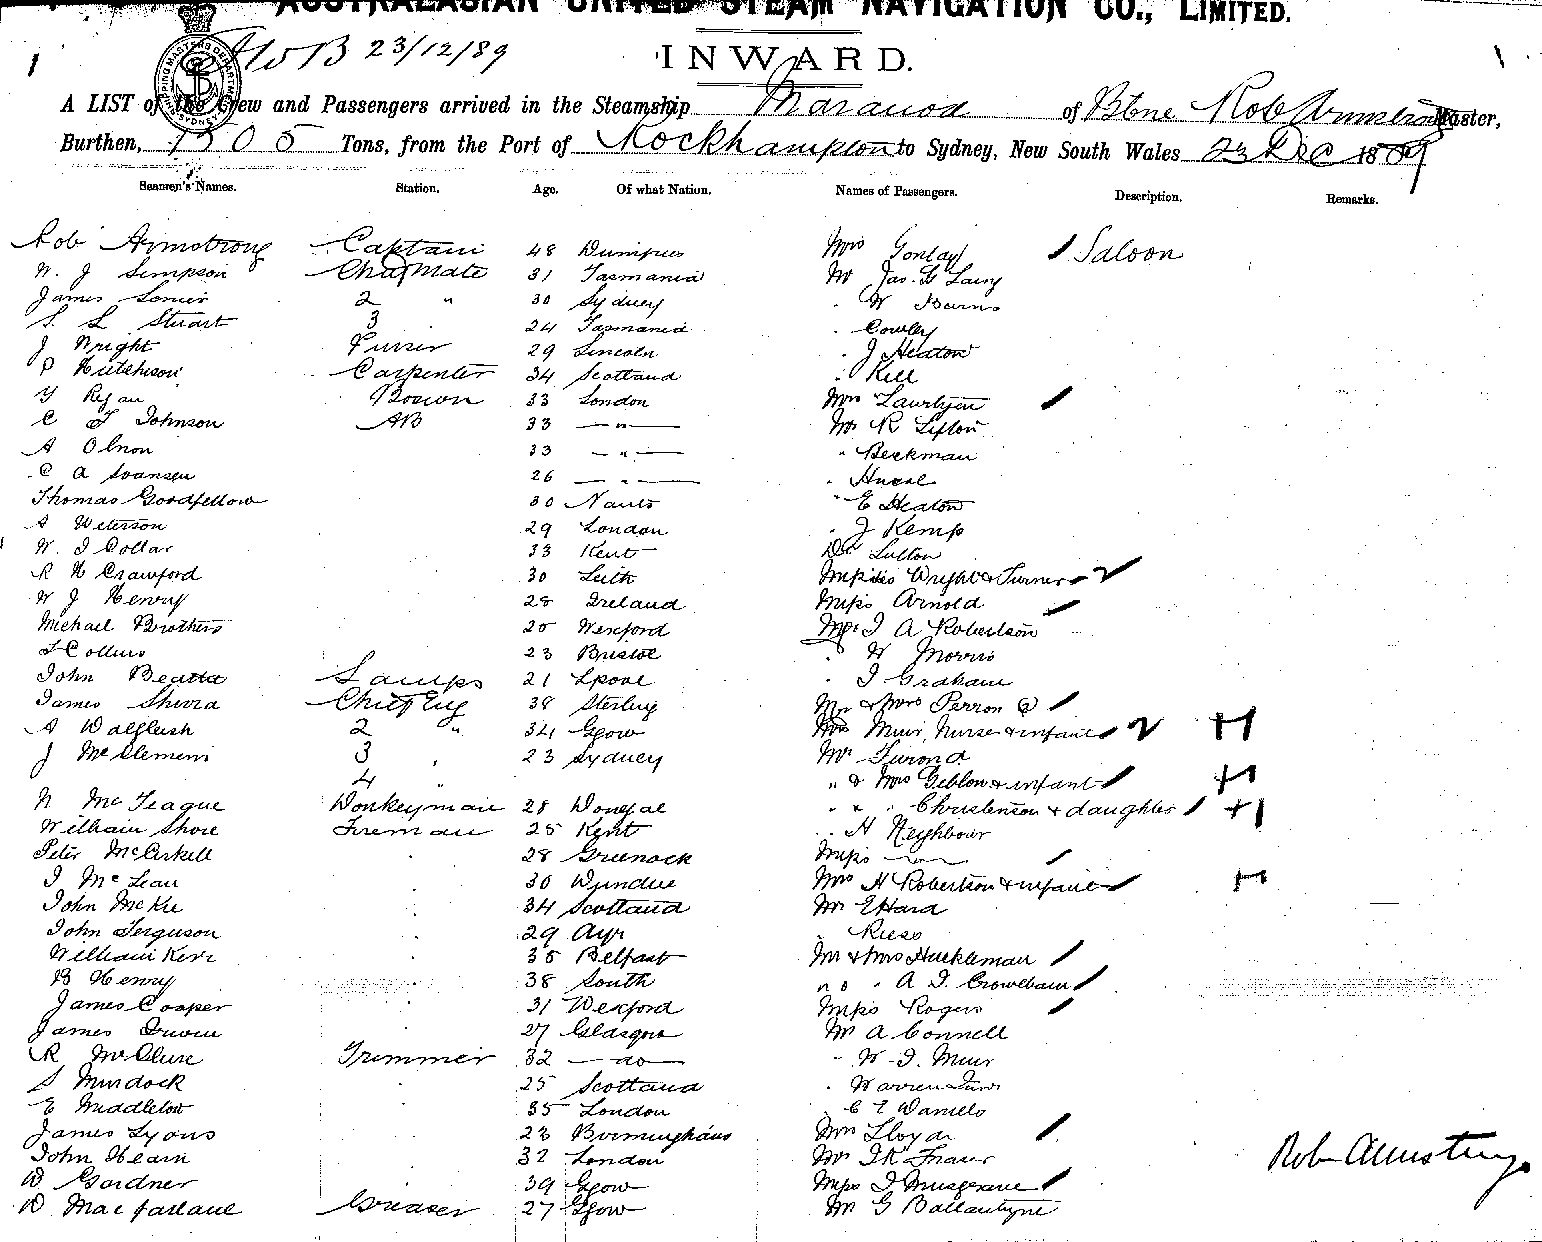 AUSTRALASIAN UNITED STEAM NAVIGATION CO., LIMITED.
23/12/89
INWARD.
A LIST of the Crew and Passengers arrived in the Steamship Maranoa of Bbne Rob Armstrong Master,
Burthen, 1505 Tons, from the Port of Rockhampton to Sydney, New South Wales 23 Dec 1889
Seamen's Names. Station. Age. Of what Nation. Names of Passengers. Description. Remarks.
Rob Armstrong Captain 48 Dumfries Mrs Saloon
W. J Simpson Chief Mate 31 Tasmania Mr Jas. G Laing
James 2 " 30 Sydney " W Burns
S. L Stuart 3 24 Tasmania " Cowley
J Wright Purser 29 Lincoln " J Heaton
P Hutchison Carpenter 34 Scotland " Kell
Y Regan Boswn 33 London Mrs
C F Johnson AB 33 — " — Mr R Lipton
A Olsson 33 — " — " Beckman
C A Svansen 26 — " —
Thomas Goodfellow 30 " E Heaton
A Weterson 29 London " J Kemp
W. J Collar 33 Kent Dr Lutton
R H Crawford 30 Leith Misses Wright & Turner 2
W J Henry 28 Ireland Miss Arnold
Michael Brothers 20 Wexford Mr J A Robertson
J Collins 23 Bristol " W Morris
John Beatta Lamps 21 Lpool " J Graham
James Chief Eng 38 Sterling Mr & Mrs Perron
A 2 " 34 Ggow Mrs Muir, Nurse & infant 2 +1
J McClemens 3 " 23 Sydney Mr
4 " " & Mrs Geblow & infant +1
N McTeague Donkeyman 28 Donegal " " " Christenson & daughter +1
William Shore Fireman 25 Kent " H Neighbour
Peter McCorkell 28 Greenock Miss — " —
J McLean 30 Dundee Mrs H Robertson & infant +1
John McKie 34 Scotland Mr E Hard
John Ferguson 29 Ayr " Riess
William Kerr 35 Belfast Mr & Mrs Huckleman
B Henry 38 South " " " A J
James Cooper 31 Wexford Miss Rogers
James Irwin 27 Glasgow Mr A Connell
R McClure Trimmer 32 — do — " W. J. Muir
S Murdock 25 Scotland " Warren
E Middleton 35 London " C E Daniels
James Lyons 23 Birmingham Mrs Lloyd
John Hearn 32 London Mr J R Fraser
D Gardner 39 Ggow Miss J Musgrave
D Macfarlane Greaser 27 Ggow Mr G Ballantyne
Rob Armstrong